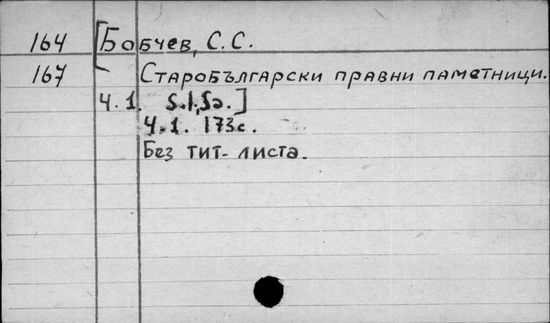 164 [Бобчев, С. С.
167 Старобългарски правни паметници.
Ч. 1. S.l., Sa.]
Ч. 1. 173 с.
Без тит. листа.